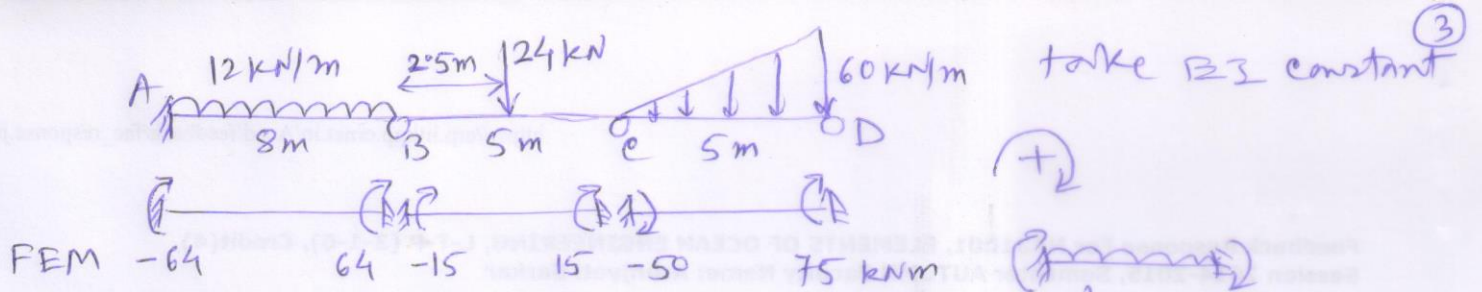 3
12 kN/m 2.5m 24 kN 60 kN/m take EI constant
A 8m B 5m C 5m D
+
FEM -64 64 -15 15 -50 75 kNm